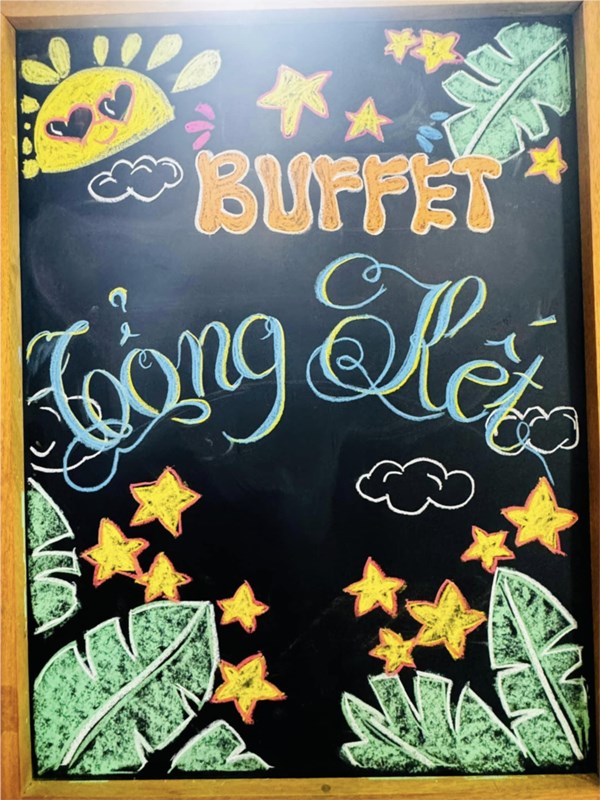 BUFFET
Tổng Kết